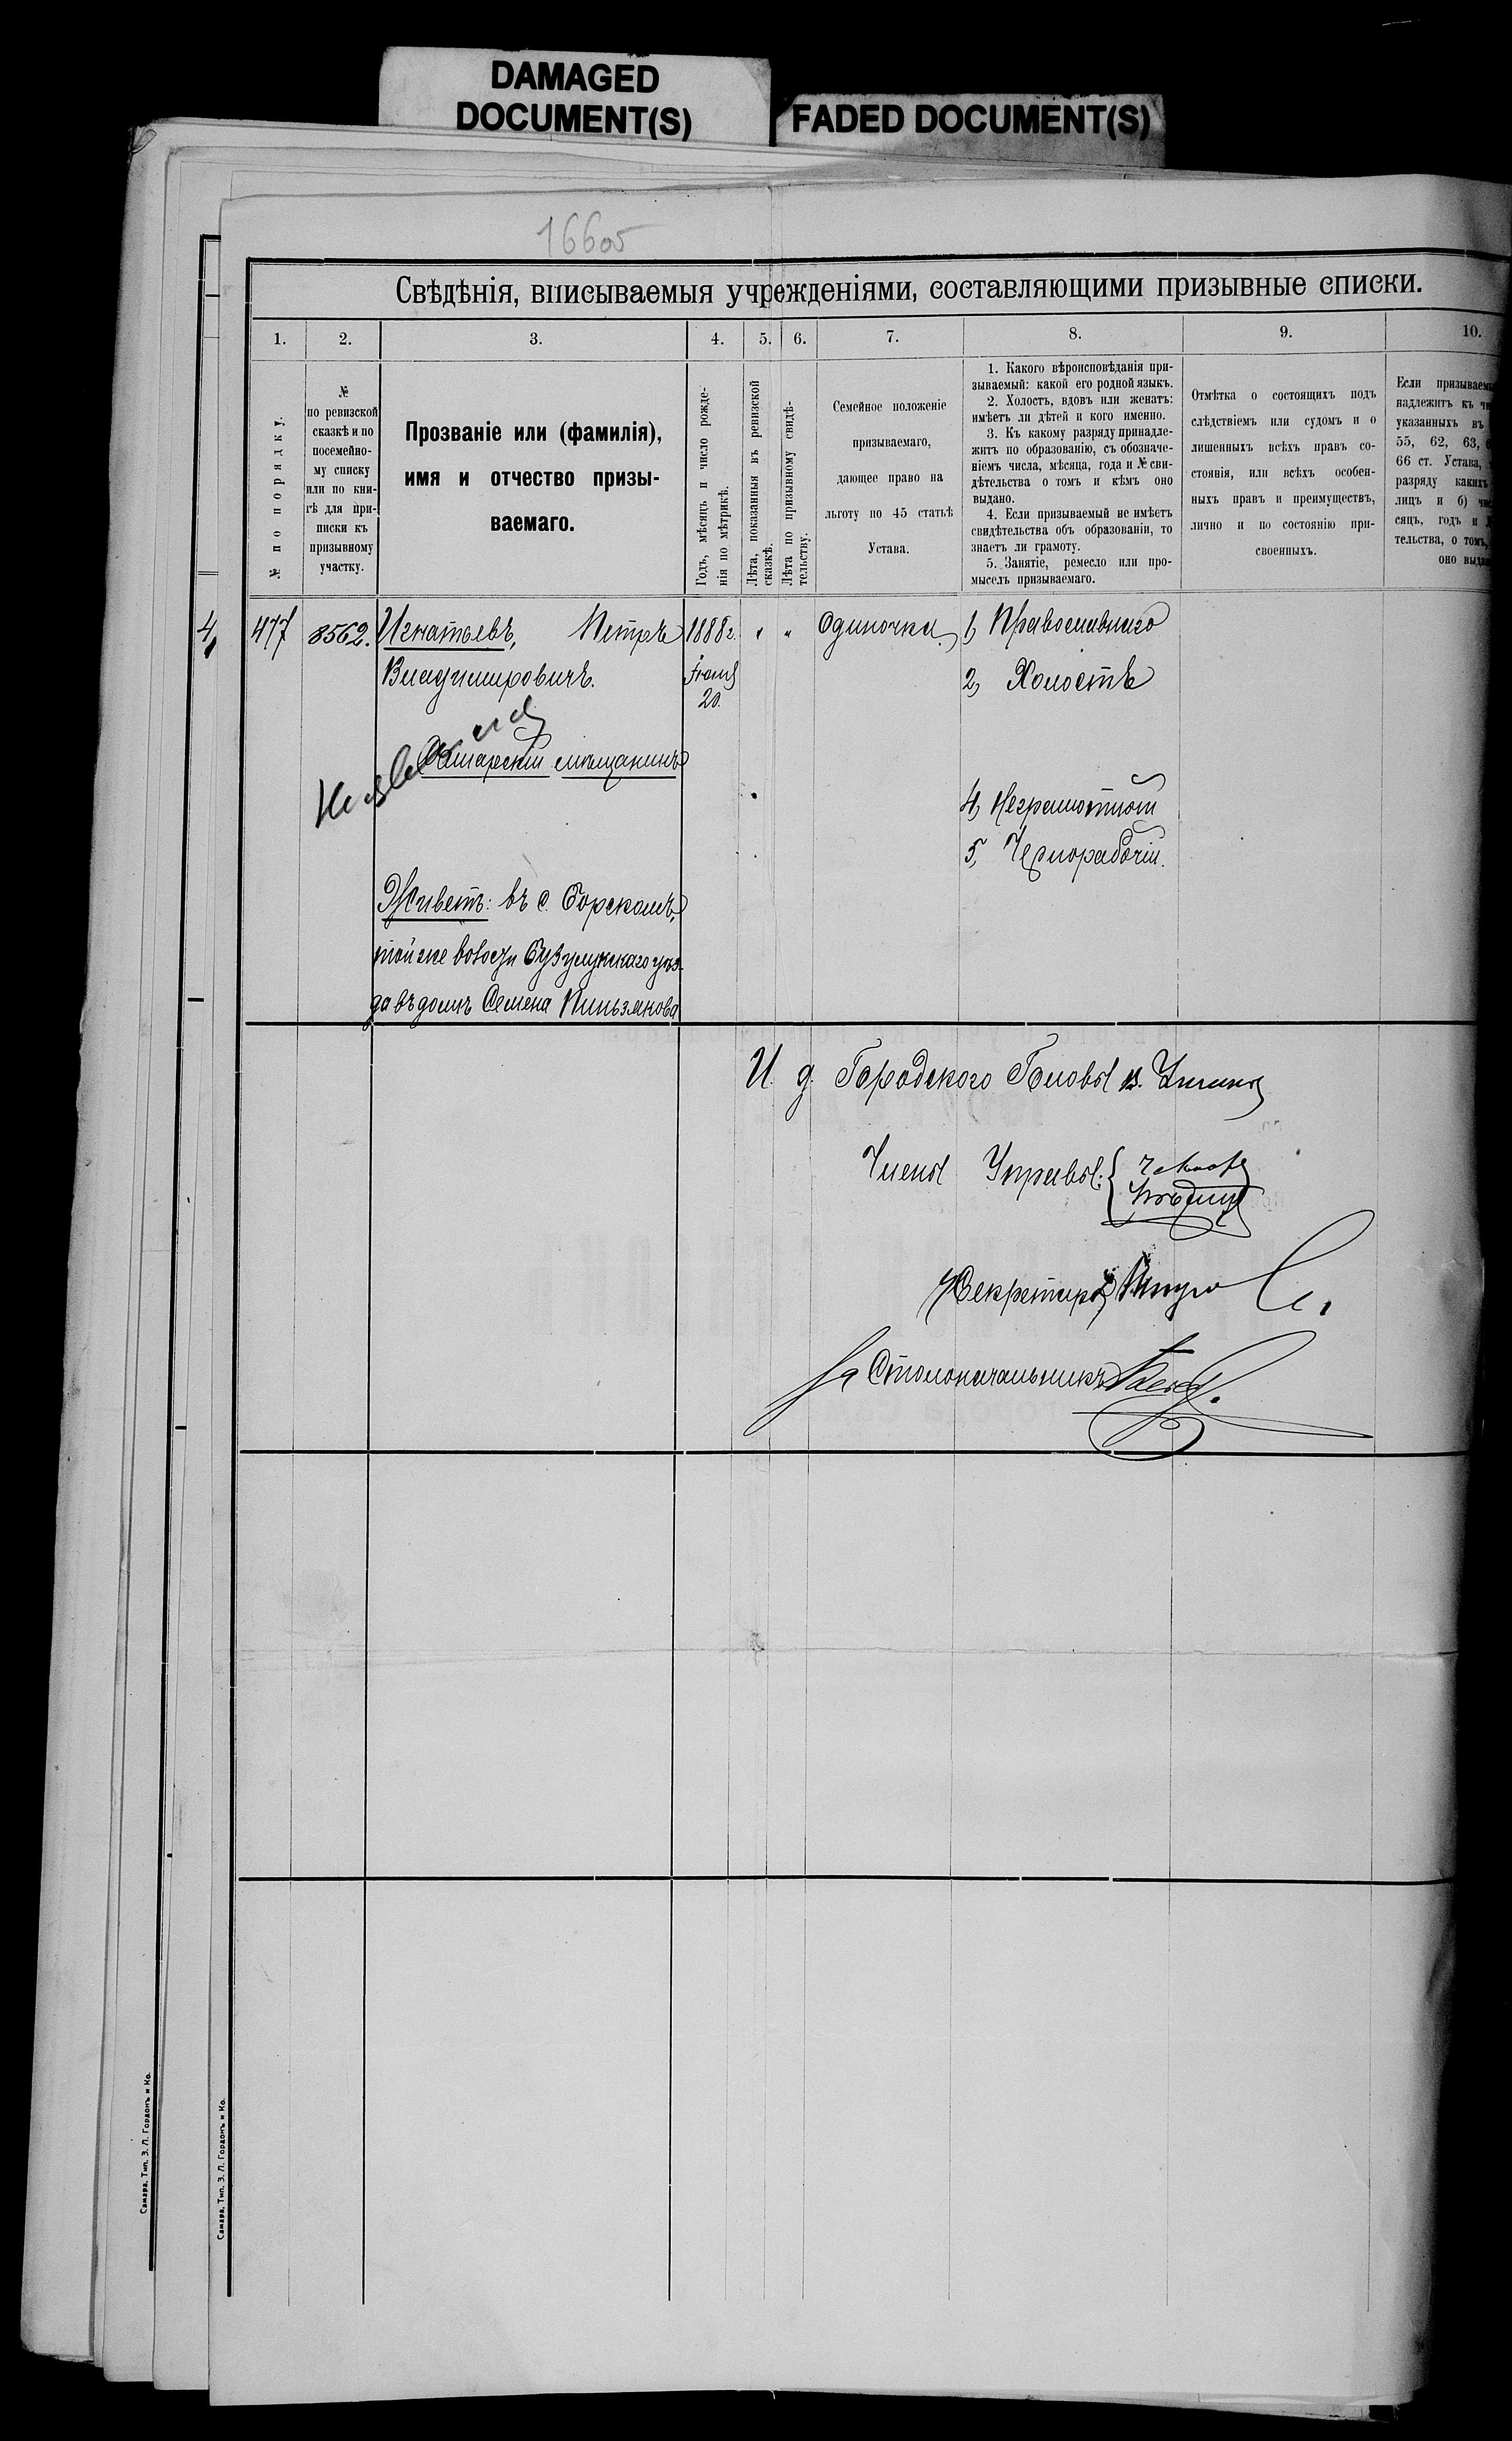 DAMAGED
DOCUMENT(S)
FADED DOCUMENT(S)
Свѣдѣнія, вписываемыя учрежденіями, составляющими призывные списки.
1.
2.
3.
4.
5.
6.
7.
8.
9.
10.
№ по порядку.
№
по ревизской
сказкѣ и по
посемейно-
му списку
или по кни-
гѣ для при-
писки къ
призывному
участку.
Прозваніе или (фамилія),
имя и отчество призы-
ваемаго.
Годъ, мѣсяцъ и число рожде-
нія по метрикѣ.
Лѣта, показанныя въ ревизской
сказкѣ.
Лѣта по призывному свидѣ-
тельству.
Семейное положеніе
призываемаго,
дающее право на
льготу по 45 статьѣ
Устава.
1. Какого вѣроисповѣданія при-
зываемый: какой его родной языкъ.
2. Холостъ, вдовъ или женатъ:
имѣетъ ли дѣтей и кого именно.
3. Къ какому разряду принадле-
житъ по образованію, съ обозначе-
ніемъ числа, мѣсяца, года и № сви-
дѣтельства о томъ и кѣмъ оно
выдано.
4. Если призываемый не имѣетъ
свидѣтельства объ образованіи, то
знаетъ ли грамоту.
5. Занятіе, ремесло или про-
мыселъ призываемаго.
Отмѣтка о состоящихъ подъ
слѣдствіемъ или судомъ и о
лишенныхъ всѣхъ правъ со-
стоянія, или всѣхъ особен-
ныхъ правъ и преимуществъ,
лично и по состоянію при-
своенныхъ.
Если призываемы
надлежитъ къ чи
указанныхъ въ
55, 62, 63,
66 ст. Устава,
разряду какихъ
лицъ и б) чи
сяцъ, годъ и
тельства, о томъ,
оно выда
4,
477
8562.
Игнатьевъ, Петръ
Владимировичъ.
1888 г.
Іюня
20.
Самарскій мѣщанинъ
Живетъ: въ с. Борскомъ,
той же волости Бузулукскаго уѣз-
да въ домѣ Семена Пиньзянова
Одиночка.
1, Православнаго
2, Холостъ
4, Неграмотный
5, Чернорабочій.
И. д. Городского Головы
Члены Управы:
Секретарь
За Столоначальникъ
Самара, Тип. З. Л. Гордонъ и Ко.
Самара, Тип. З. Л. Гордонъ и Ко.